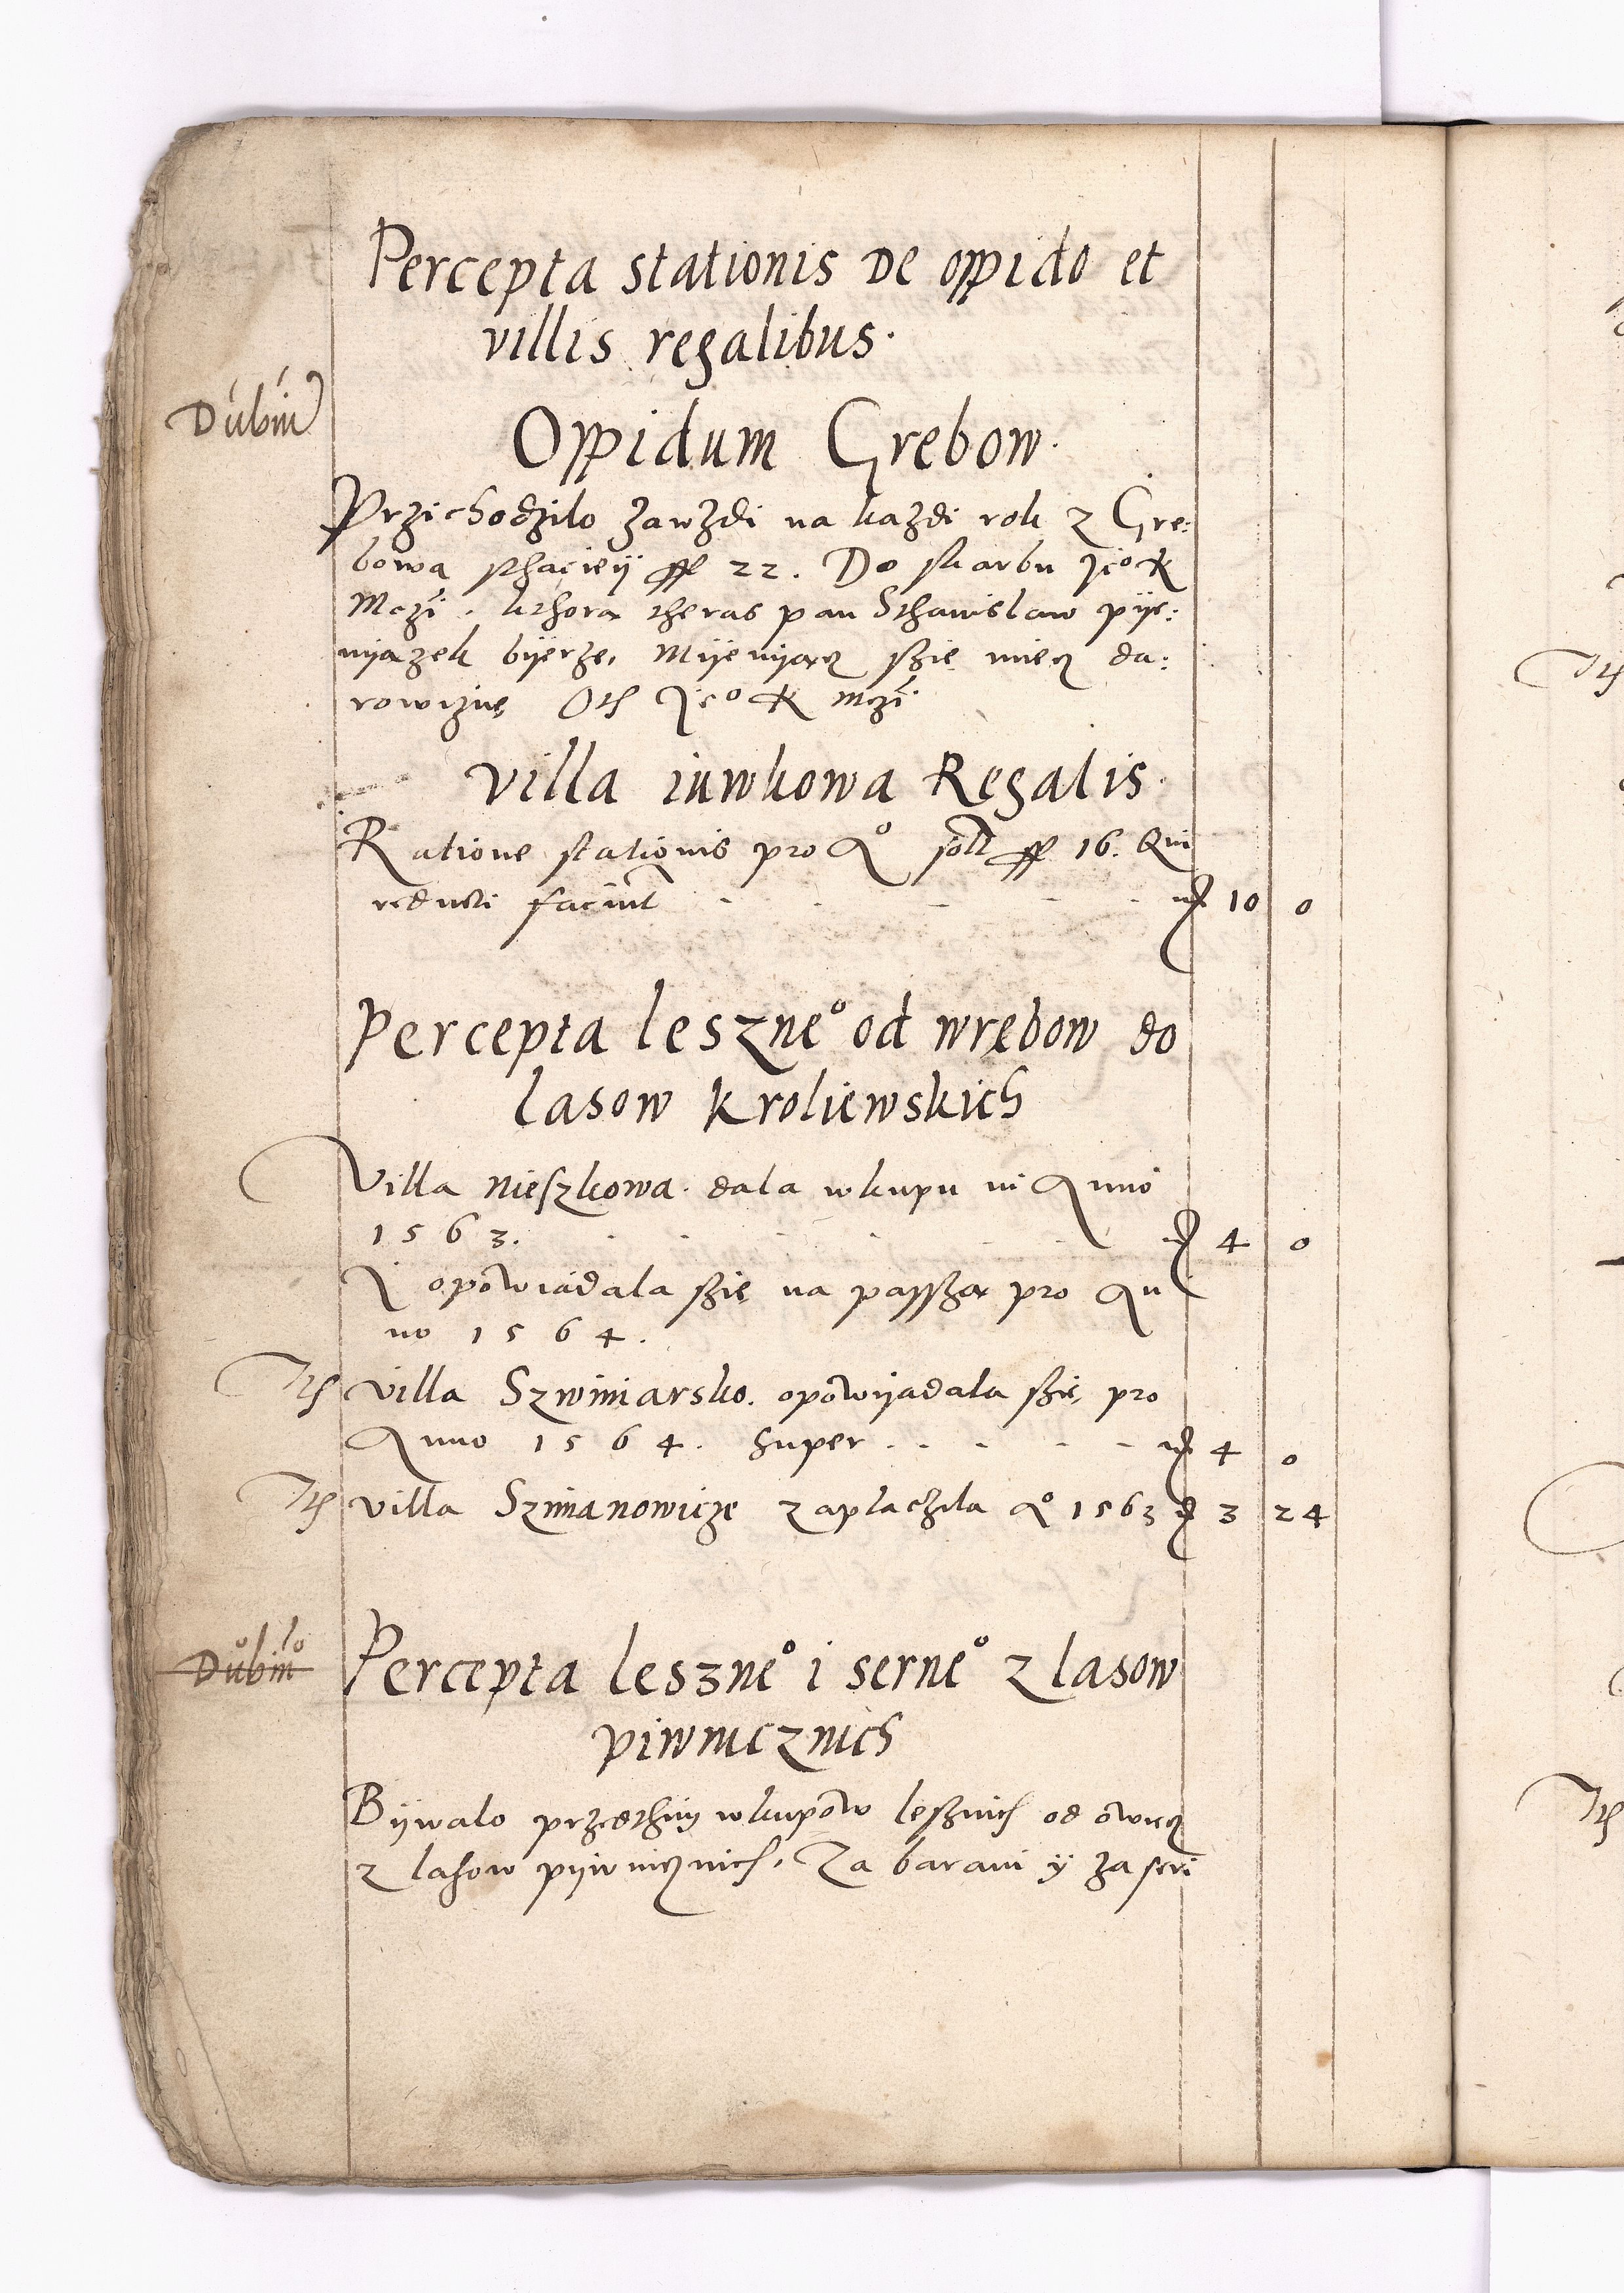 Percepta stationis de oppido et
villis regalibus.
Dubiu
Oppidum Grebow.
Przichodzilo zawzdi na kazdi rok z Gre:
bowa sthaciey 22. Do skarbu Jeo K
Mczi. kthora theras pan Sthanislaw pije:
nijazek bijerze, Mijenijacz szie miecz da:
rowiznę Oth Jeo K mczi.
villa iuwkowa Regalis.
Ratione stationis pro Ao solt 16. Qui
reducti faciunt 10 0
Percepta leszneo od wrębow do
lasow kroliewskich
Villa Nieszkowa. dala wkupu in Anno
1563. 4 0
J opowiadala szię na passzą pro An
no 1564.
Ith villa Szwiniarsko. opowijadala szię pro
Anno 1564. super 4 0
Ith villa Szimanowicze zaplaczila Ao 1563 3 24
Dubiu
Percepta leszneo i serneo z lasow
piwnicznich
Bijwalo przedthim wkupow lesznich od owiecz
z lasow pijwnicznich. Za barani ij za seri